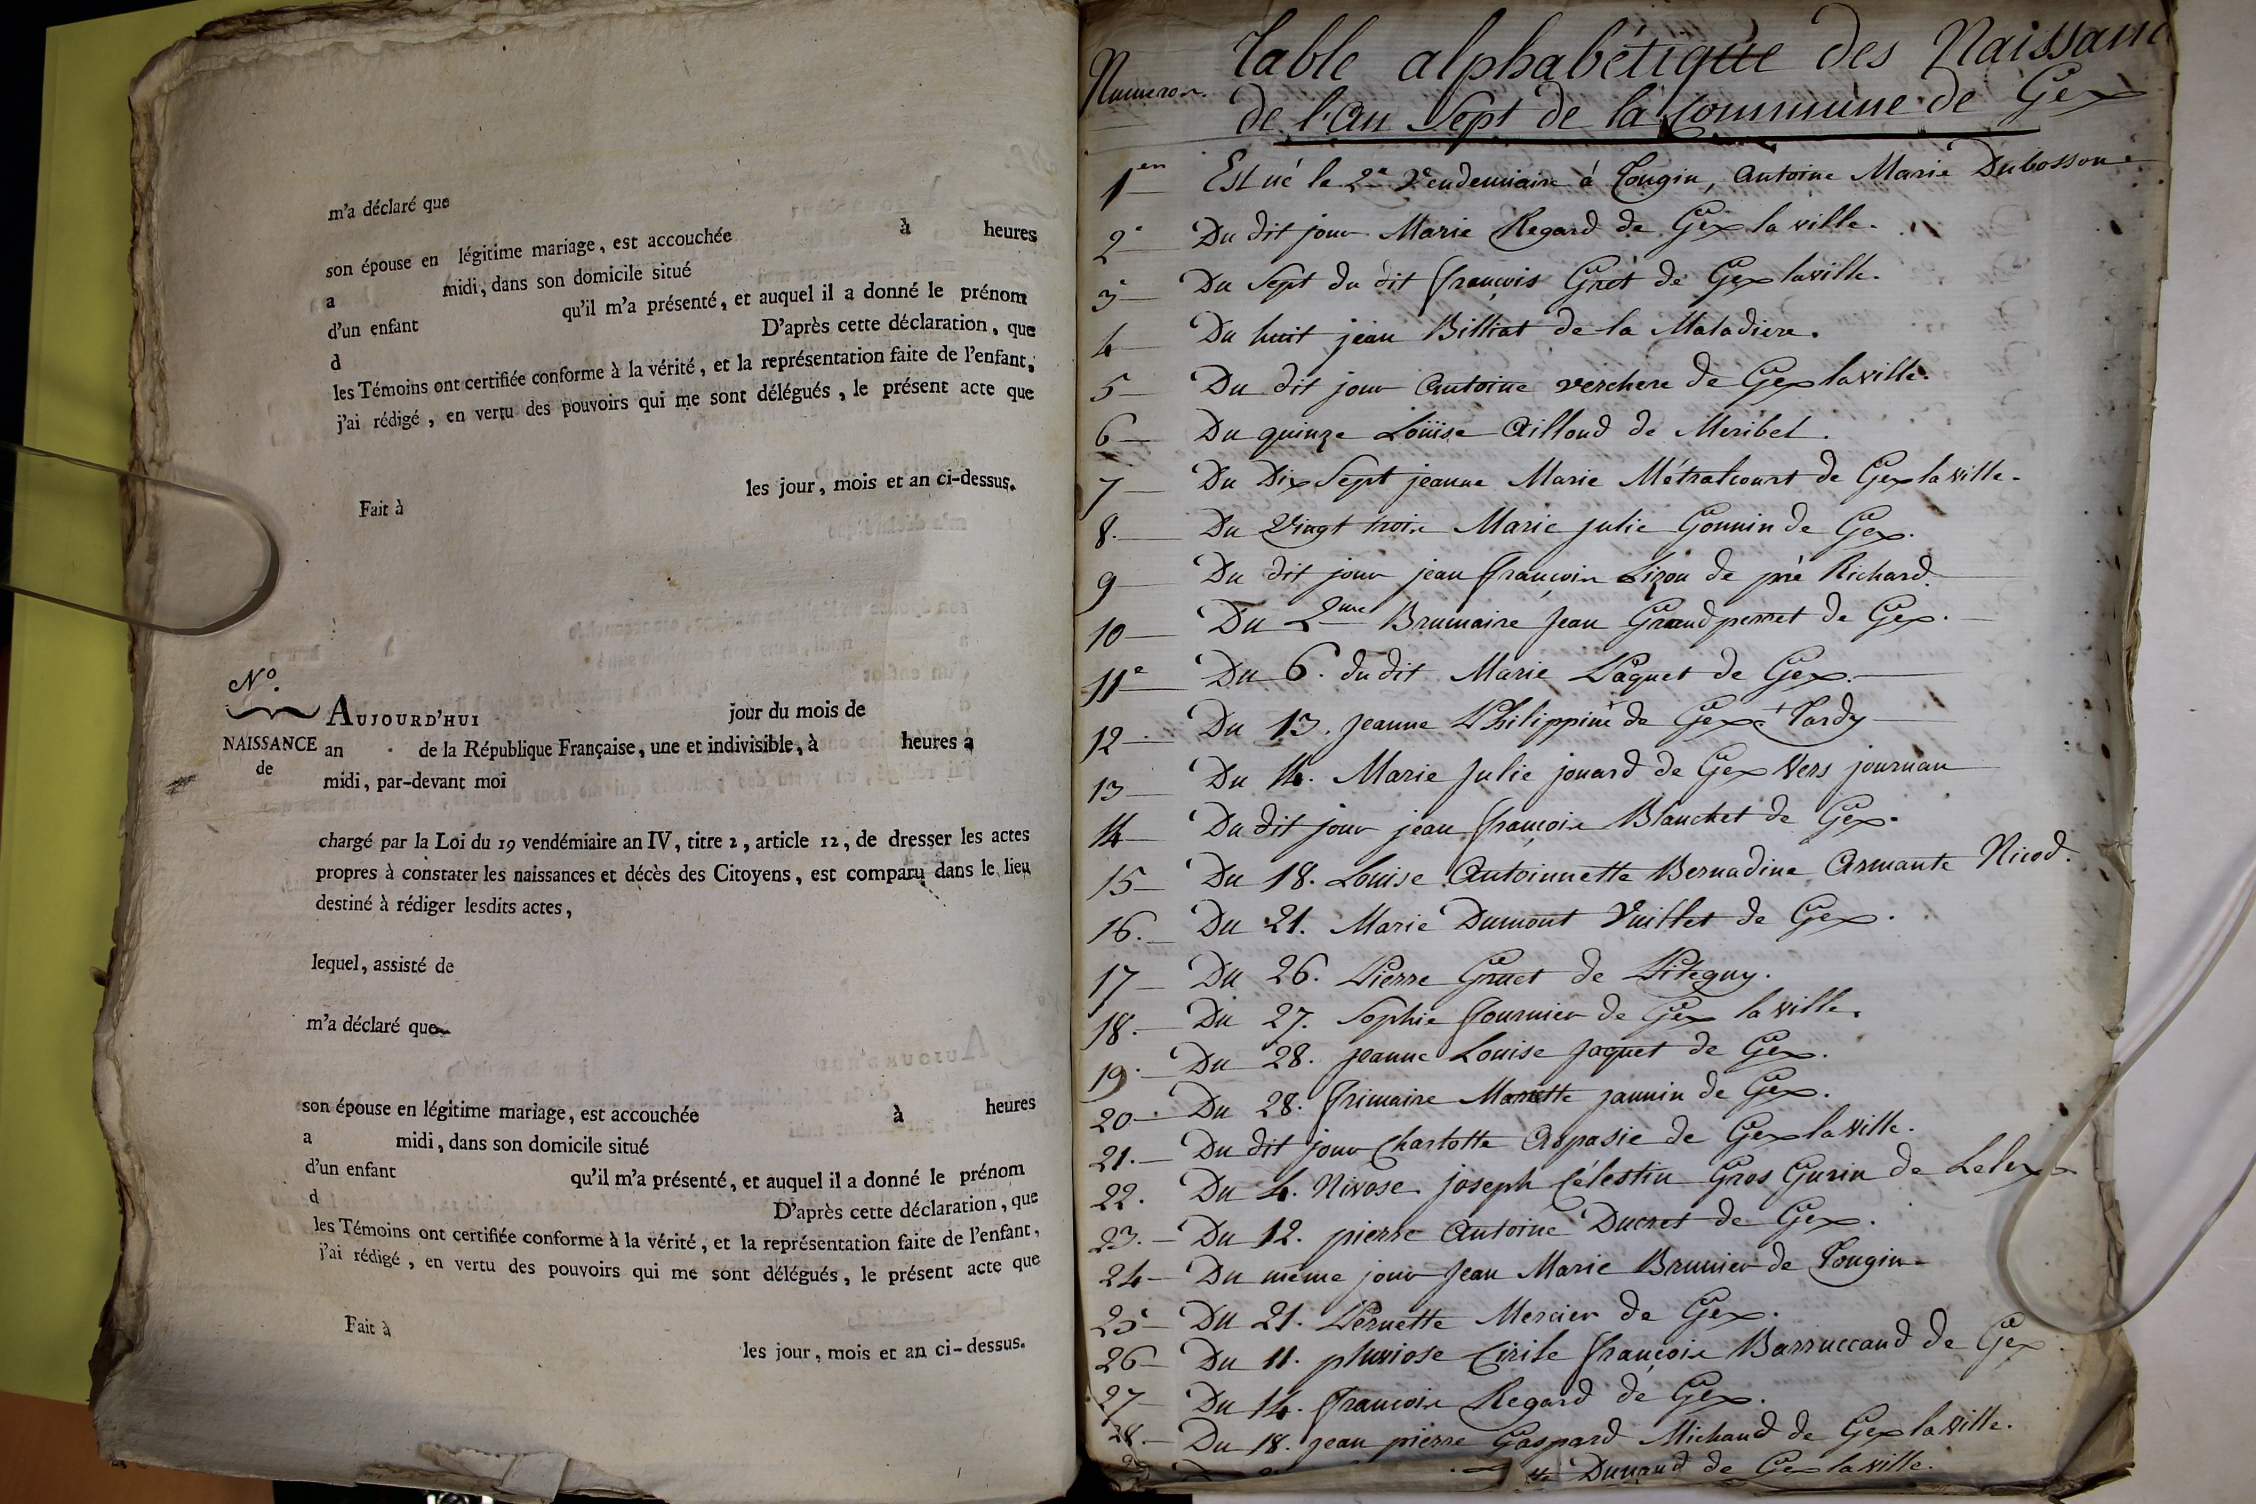 m'a déclaré que
son épouse en légitime mariage, est accouchée à heures
a midi, dans son domicile situé
d'un enfant qu'il m'a présenté, et auquel il a donné le prénom
d D'après cette déclaration, que
les Témoins ont certifiée conforme à la vérité, et la représentation faite de l'enfant,
j'ai rédigé, en vertu des pouvoirs qui me sont délégués, le présent acte que
Fait à les jour, mois et an ci-dessus.
N°.
NAISSANCE
de
AUJOURD'HUI jour du mois de
an de la République Française, une et indivisible, à heures a
midi, par-devant moi
chargé par la Loi du 19 vendémiaire an IV, titre 2, article 12, de dresser les actes
propres à constater les naissances et décès des Citoyens, est comparu dans le lieu
destiné à rédiger lesdits actes,
lequel, assisté de
m'a déclaré que
son épouse en légitime mariage, est accouchée à heures
a midi, dans son domicile situé
d'un enfant qu'il m'a présenté, et auquel il a donné le prénom
d D'après cette déclaration, que
les Témoins ont certifiée conforme à la vérité, et la représentation faite de l'enfant,
j'ai rédigé, en vertu des pouvoirs qui me sont délégués, le présent acte que
Fait à les jour, mois et an ci-dessus.
Numeros. Table alphabétique des Naissanc
de l'an Sept de la Commune de Gex
1er Est né le 2e Vendemiaire à Tougin, Antoine Marie Dubosson
2e Du dit jour Marie Regard de Gex la ville.
3 Du Sept du dit françois Grót de Gex laville.
4 Du huit jean Billiat de la Maladiere.
5 Du dit jour Antoine verchere de Gex laville.
6 Du quinze Loüise Ailloud de Meribel.
7 Du Dix Sept jeanne Marie Métralcourt de Gex laville.
8. Du Vingt trois Marie julie Gonnin de Gex.
9 Du dit jour jean françois Lizon de pré Richard.
10 Du 2me Brumaire Jean Grandperret de Gex.
11e Du 6. du dit Marie Paquet de Gex.
12 Du 13. Jeanne Philippine de Gex Tardy
13 Du 14. Marie Julie jouard de Gex Vers journan
14 Du dit jour jean françois Blanchet de Gex.
15 Du 18. Louise Antoinnette Bernadine Armante Nicod.
16. Du 21. Marie Dumont Vuillet de Gex.
17 Du 26. Pierre Gruet de Pitegny.
18. Du 27. Sophie fournier de Gex la ville.
19. Du 28. jeanne Louise Jaquet de Gex.
20 Du 28. frimaire Mariette jannin de Gex.
21. Du dit jour Charlotte Aspasie de Gex la ville.
22. Du 4. Nivose joseph Célestin Gros Gurin de Lelex
23. Du 12. pierre Antoine Ducret de Gex.
24 Du même jour Jean Marie Brunier de Tougin
25 Du 21. Pernette Mercier de Gex.
26 Du 11. pluviose Cirile françois Barruccand de Gex
27 Du 14. francois Regard de Gex.
28. Du 18. jean pierre Gaspard Michaud de Gex laville.
Dunand de Gex laville.